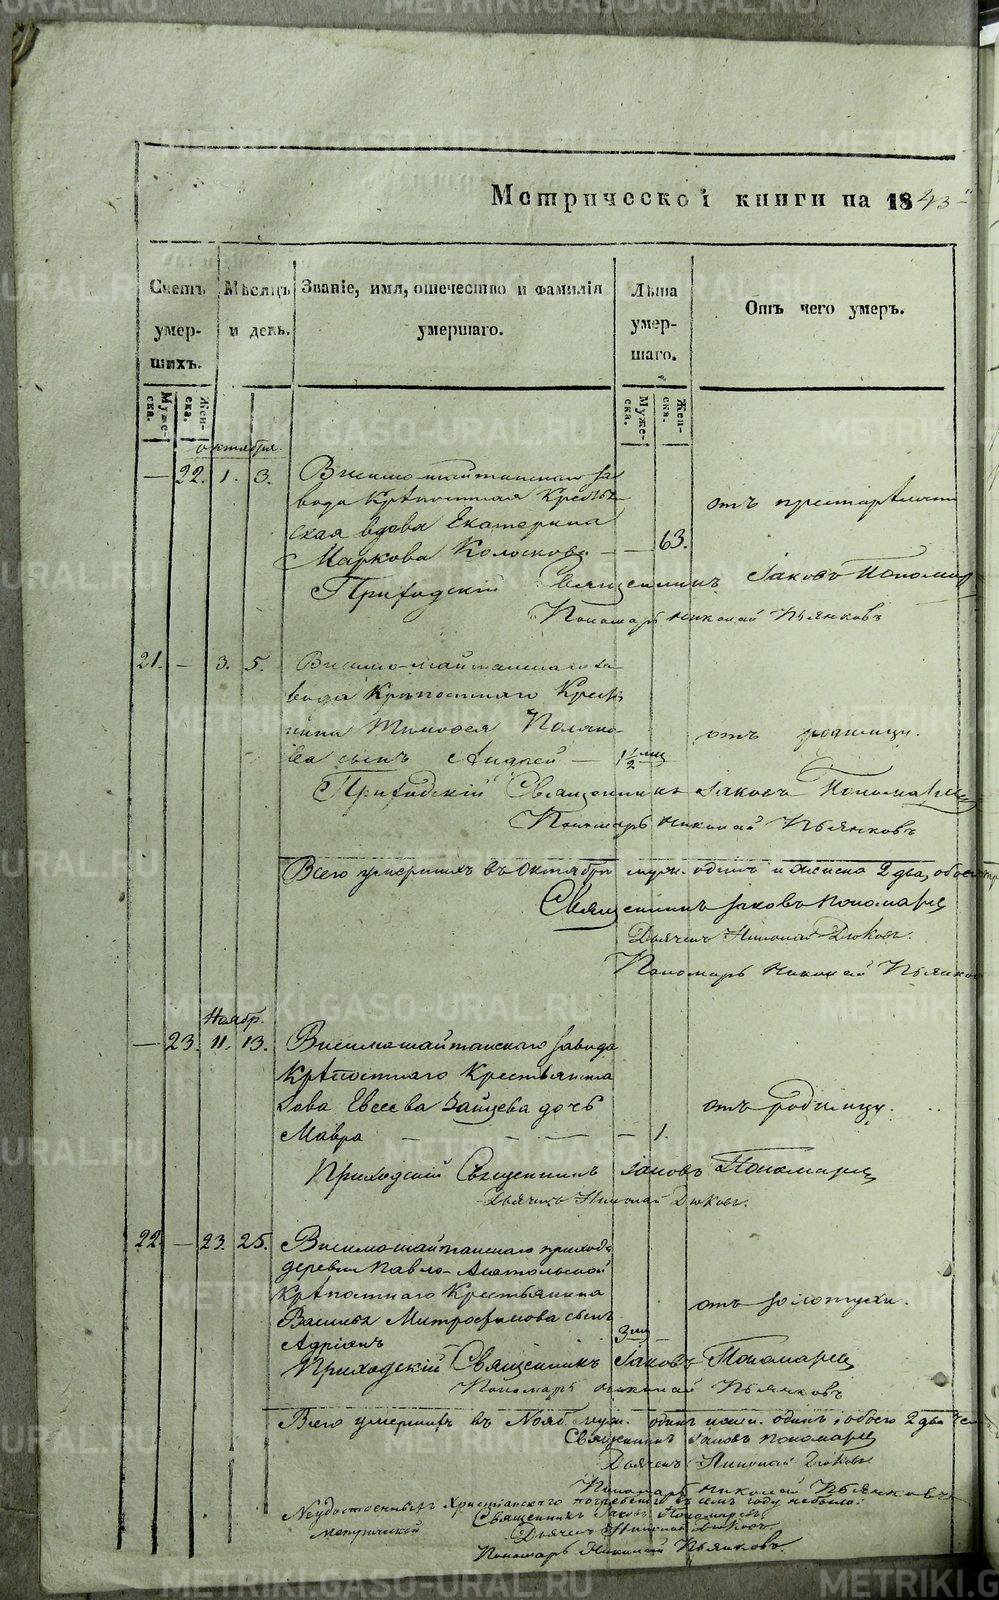 Метрической книги на 1843
Счетъ умер-шихъ.
Муже-ска.
Жен-ска.
Мѣсяцъ и день.
Званіе, имя, отечество и фамилія умершаго.
Лѣта умер-шаго.
Муже-ска.
Жен-ска.
Отъ чего умеръ.
октября.
— 22. 1. 3. Висимо-шайтанскаго за
вода Крѣпостная Кресть
ская вдова Екатерина
Маркова Колоскова — — 63. отъ престарѣлости
Приходскій Священникъ Іаковъ Пономар
Пономарь Николай Пьянковъ
21. — 3. 5. Висимо-шайтанскаго за
вода Крѣпостнаго Крестья
нина Тимофея Поляко
ва сынъ Андрей — 1 1/2 мц отъ родимцу.
Приходскій Священникъ Іаковъ Пономарев
Пономарь Николай Пьянковъ
Всего умершихъ въ Октябрѣ муж. одинъ и женска 2 два, обоего
Священникъ Іаковъ Пономарев
Дьячекъ Николай Дюковъ.
Пономарь Николай Пьянков
Ноябр.
— 23. 11. 13. Висимошайтанскаго завода
Крѣпостнаго Крестьянина
Савы Евсеева Зайцева дочь
Мавра — — — — — 1. отъ родимцу.
Приходскій Священникъ Іаковъ Пономарев
Дьячекъ Николай Дюковъ.
22 — 23. 25. Висимошайтанскаго прихода
деревни Павло-Анатольской
Крѣпостнаго Крестьянина
Василья Митрофанова сынъ
Адріянъ 3 мц — отъ золотухи.
Приходскій Священникъ Іаковъ Пономарев
Пономарь Николай Пьянковъ
Всего умершихъ въ Нояб. муж. одинъ женс. одинъ, обоего 2 два чел
Священникъ Іаковъ Пономарев
Дьячекъ Николай Дюковъ
Пономарь Николай Пьянковъ
Неудостоенныхъ Христіанскаго погребенія въ семъ году небыло.
метрической
Священникъ Іаковъ Пономаревъ
Дьячекъ Николай Дюковъ
Пономарь Николай Пьянковъ.
METRIKI.GASO-URAL.RU